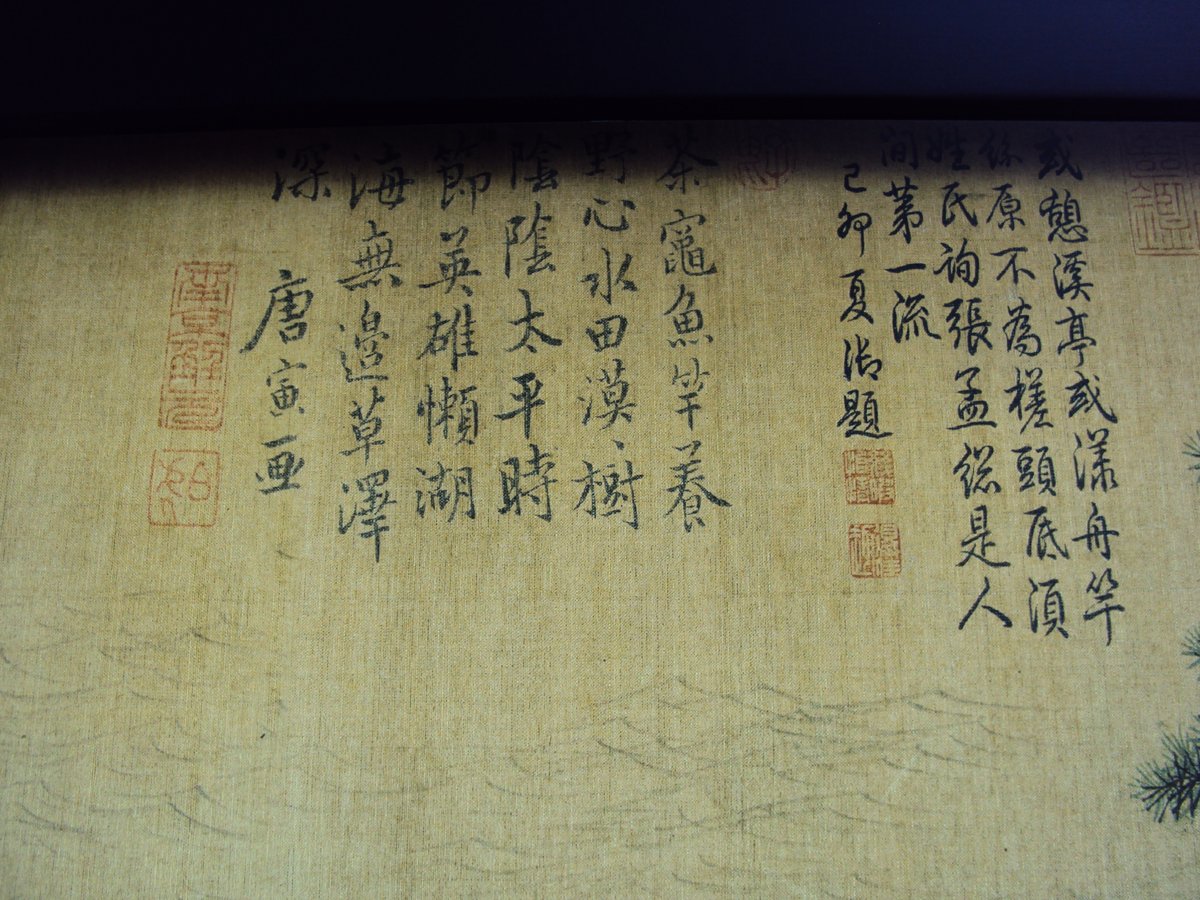 或憩溪亭或漾舟竿
絲原不為槎頭底須
姓氏詢張孟總是人
間第一流
己卯夏御題
茶竈魚竿養
野心水田漠、樹
陰陰太平時
節英雄懶湖
海無邊草澤
深
唐寅画
南京解元